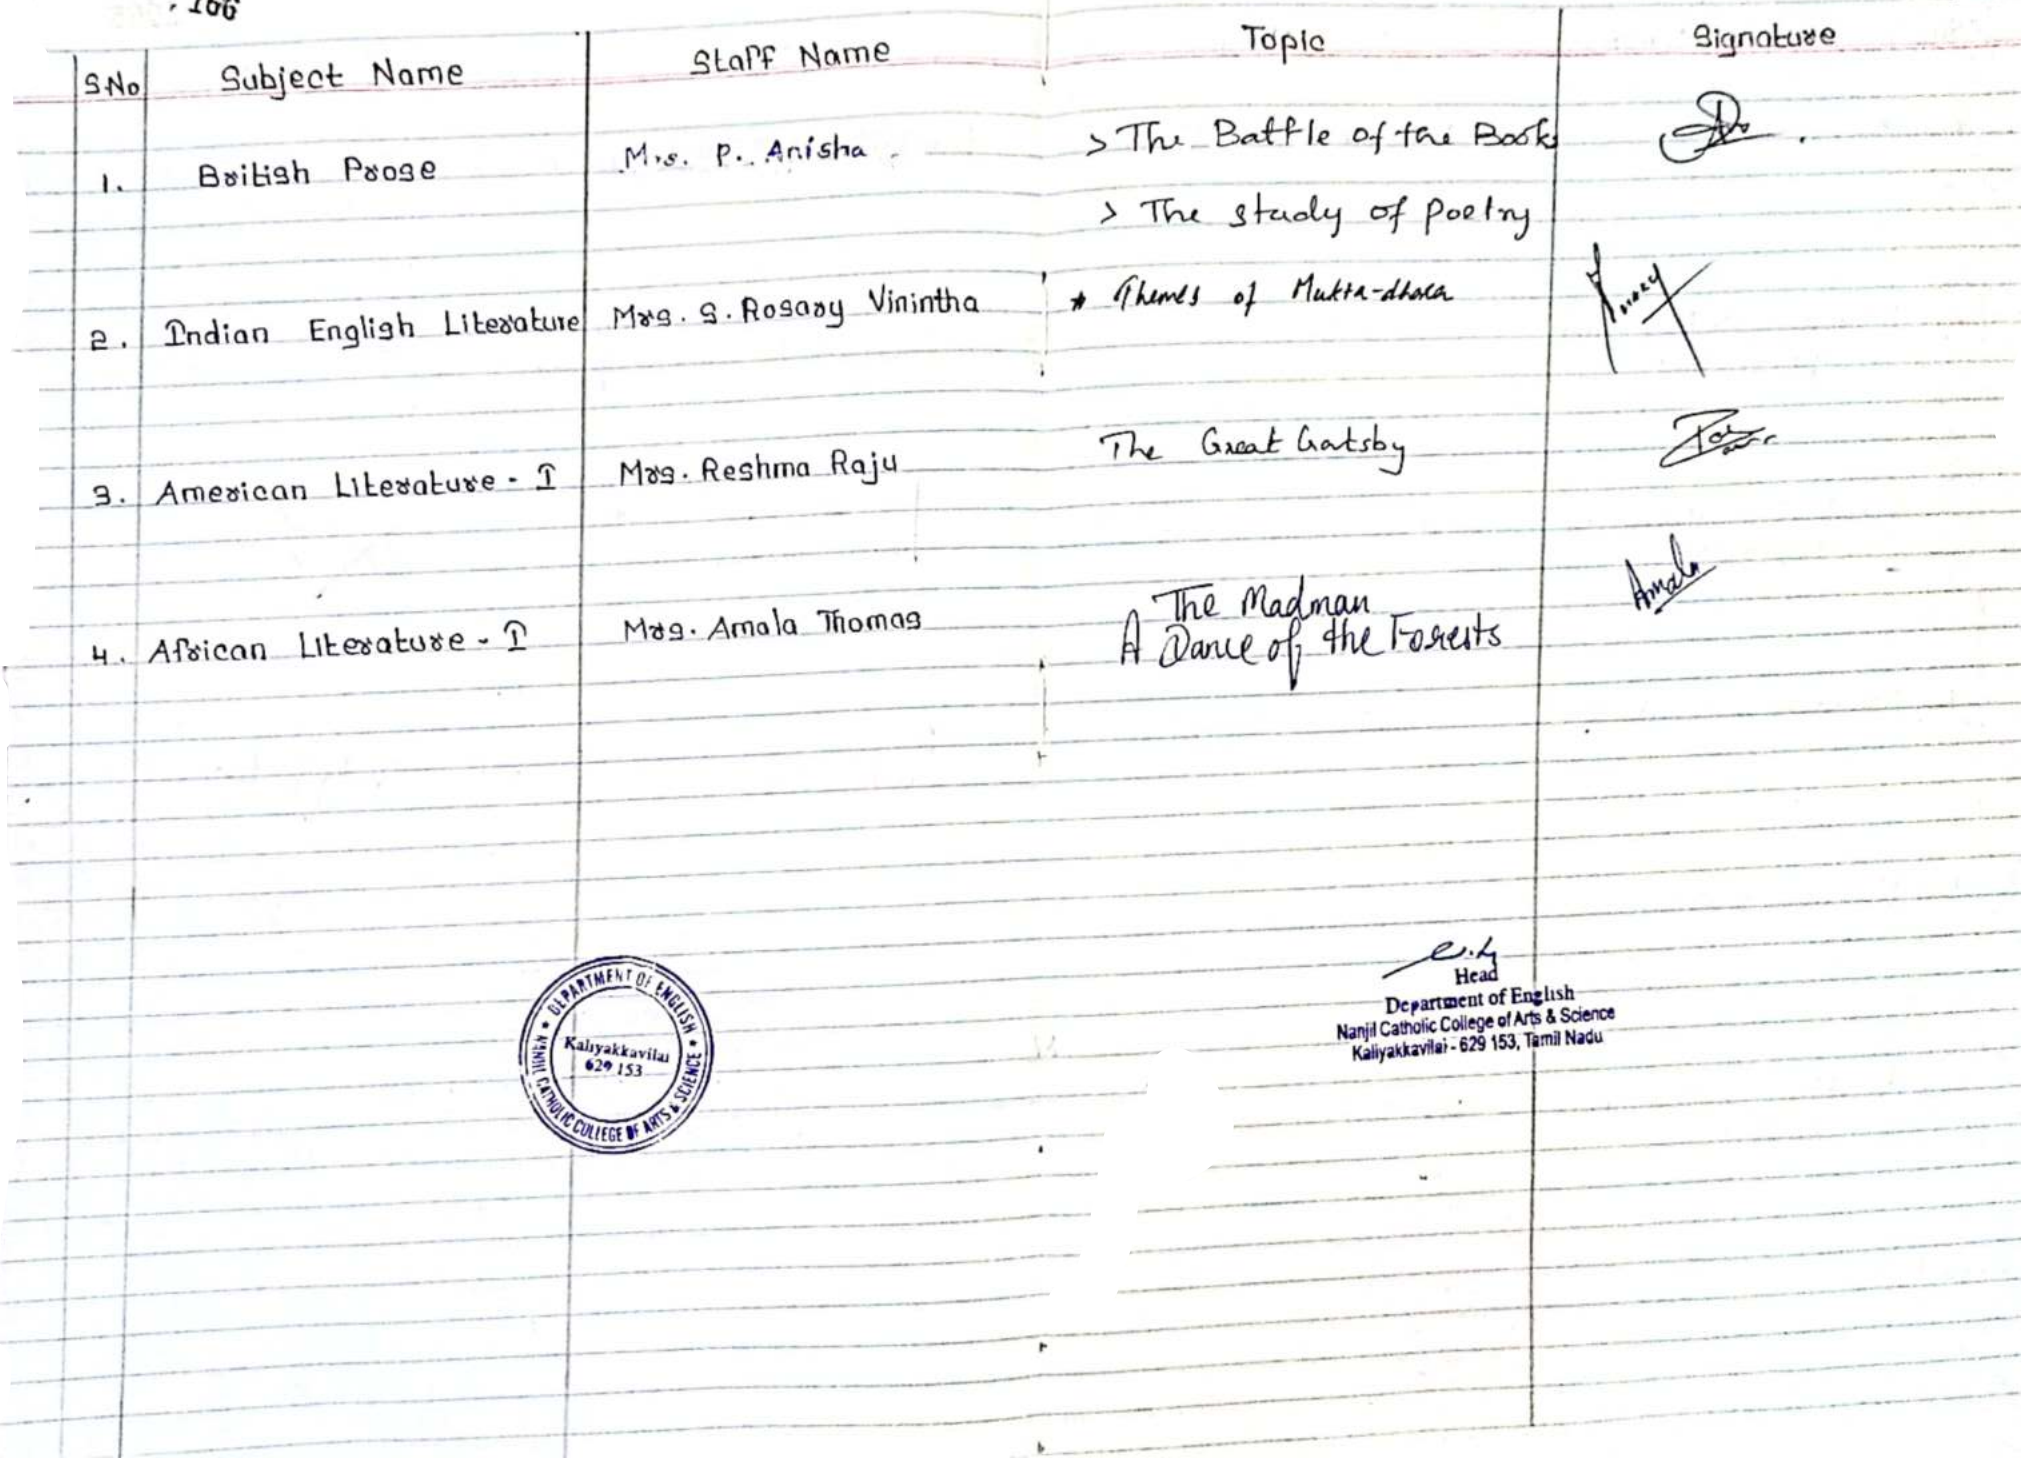 166
S.No Subject Name Staff Name Topic Signature
1. British Prose Mrs. P. Anisha > The Battle of the Books
> The study of Poetry
2. Indian English Literature Mrs. S. Rosary Vinintha * Themes of Mukta-dhara
3. American Literature - I Mrs. Reshma Raju The Great Gatsby
4. African Literature - I Mrs. Amala Thomas The Madman
A Dance of the Forests
Amala
DEPARTMENT OF ENGLISH
NANJIL CATHOLIC COLLEGE OF ARTS & SCIENCE
Kaliyakkavilai
629 153
Head
Department of English
Nanjil Catholic College of Arts & Science
Kaliyakkavilai - 629 153, Tamil Nadu